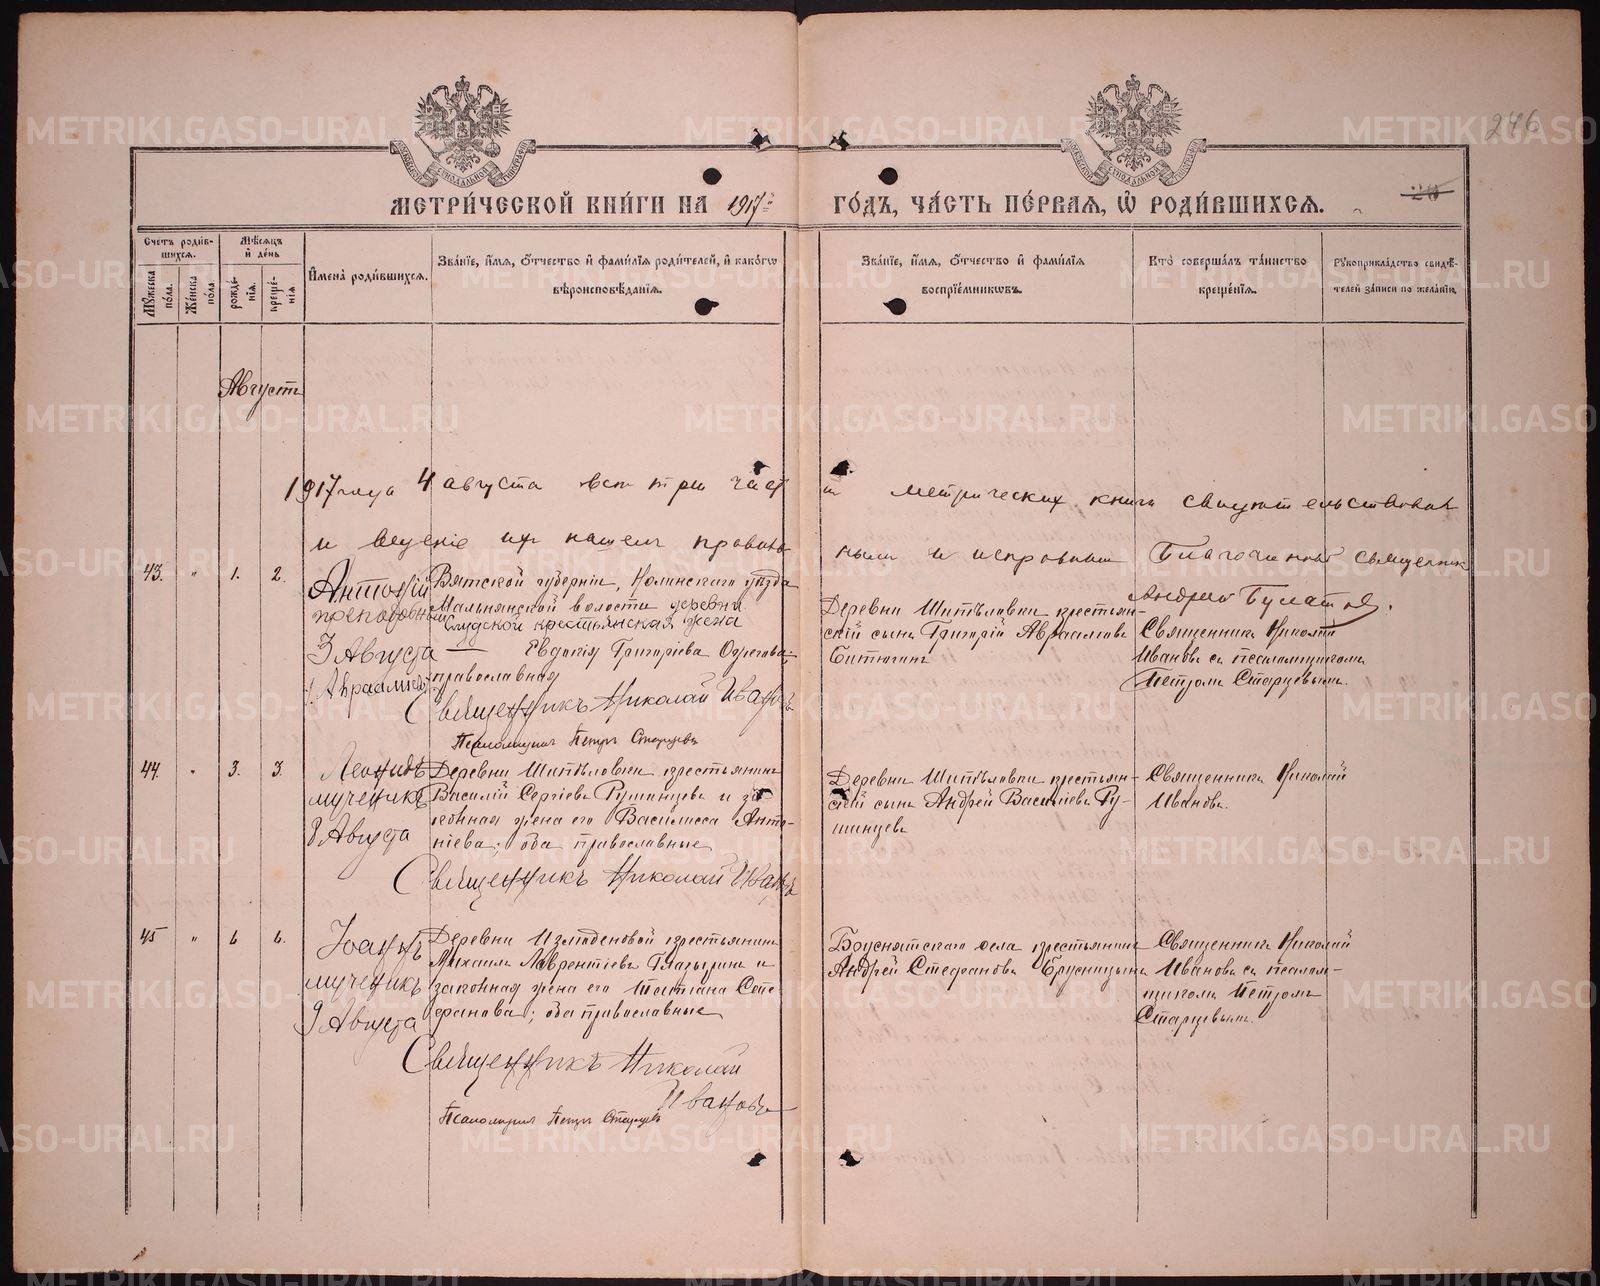 246
МЕТРИ́ЧЕСКОЙ КНИ́ГИ НА 1917й ГО́ДЪ, ЧА́СТЬ ПЕ́РВАЯ, Ѡ РОДИ́ВШИХСЯ.
Счетъ роди́вшихся.
Мѣ́сяцъ и де́нь
Мꙋ́жеска по́ла.
Же́нска по́ла.
рожде́нїя.
креще́нїя
И҆мена̀ роди́вшихся.
Зва́нїе, и҆́мя, ѻ҆́тчество и҆ фами́лїя роди́телей, и҆ како́гѡ
вѣроисповѣ́данїя.
Зва́нїе, и҆́мя, ѻ҆́тчество и҆ фами́лїя
воспрїе́мникѡвъ.
Кто̀ соверша́лъ та́инство
креще́нїя.
Рꙋкоприкла́дство свидѣ́-
телей за́писи по жела́нїю.
Августъ
1917 года 4 августа все три части метрических книги свидетельствовал
и ведение их нашел правильным и исправным Благочинный священник
Андрей Булатов.
43. " 1. 2.
Антоній
преподобный
3 Августа
Вятской губерніи, Нолинскаго уѣзда
волости деревни
крестьянская жена
Евдокія Григоріева
православная
Священникъ Николай Ивановъ
Псаломщикъ Петръ Старцевъ
Деревни Шипѣловки крестьян-
скій сынъ Григорій Авраамовъ
Битюгинъ
Священникъ Николай
Ивановъ съ псаломщикомъ
Петромъ Старцевымъ.
44. " 3. 3.
Леонидъ
мученикъ
8 Августа
Деревни Шипѣловки крестьянинъ
Василій Сергіевъ Румянцевъ и за-
конная жена его Василисса Анто-
ніева; оба православные
Священникъ Николай Ивановъ
Деревни Шипѣловки крестьян-
скій сынъ Андрей Васильевъ Ру-
мянцевъ
Священникъ Николай
Ивановъ.
45 " 6 6.
Іоаннъ
мученикъ
9 Августа
Деревни Измоденовой крестьянинъ
Михаилъ Лаврентіевъ Глазыринъ и
законная жена его Татіана Сте-
фанова; оба православные
Священникъ Николай
Ивановъ
Псаломщикъ Петръ Старцевъ
Бруснятскаго села крестьянинъ
Андрей Стефановъ Брусницынъ
Священникъ Николай
Ивановъ съ псалом-
щикомъ Петромъ
Старцевымъ.
METRIKI.GASO-URAL.RU